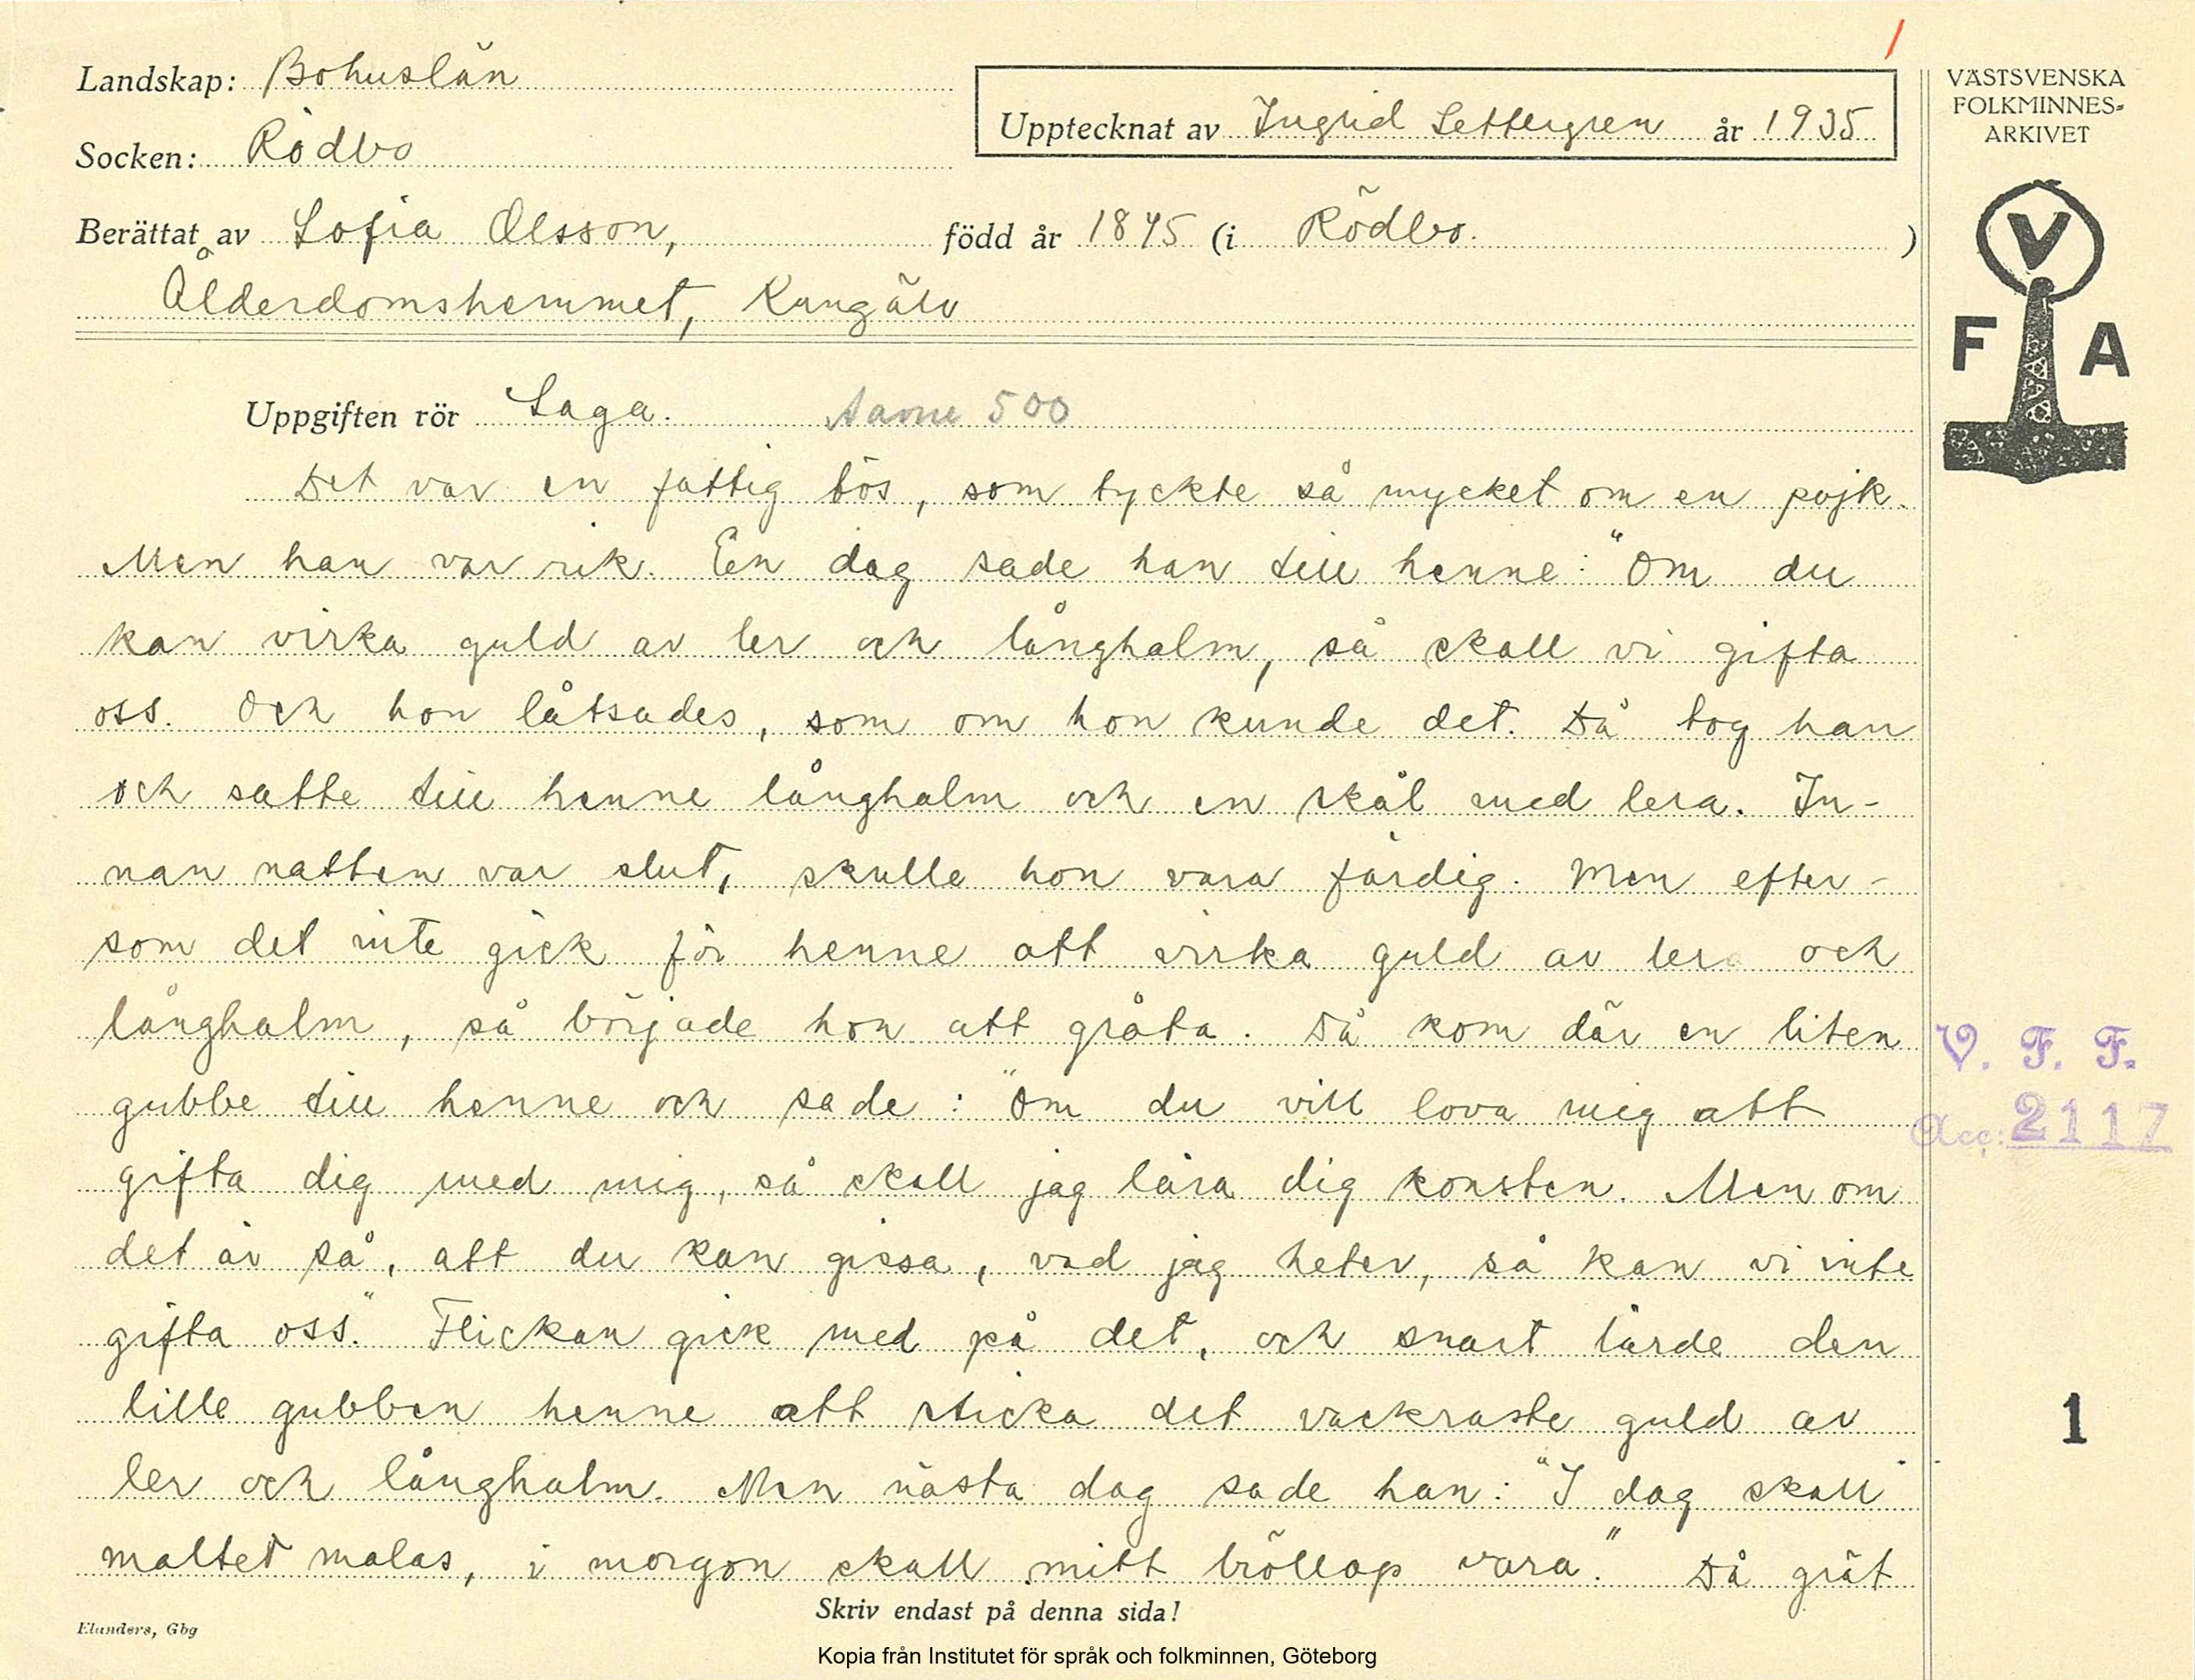 /
Landskap: Bohuslän
Socken: Rödbo
Upptecknat av Ingrid Settergren år 1935
VÄSTSVENSKA
FOLKMINNES-
ARKIVET
V
F A
Berättat av Sofia Olsson, född år 1845 (i Rödbo. )
Ålderdomshemmet, Kungälv
Uppgiften rör Saga. Aarne 500
Det var en fattig tös, som tyckte så mycket om en pojk.
Men han var rik. En dag sade han till henne: "Om du
kan virka guld av ler och långhalm, så skall vi gifta
oss. Och hon låtsades, som om hon kunde det. Då tog han
och satte till henne långhalm och en skål med lera. In-
nan natten var slut, skulle hon vara färdig. Men efter-
som det inte gick för henne att virka guld av lera och
långhalm, så började hon att gråta. Då kom där en liten
gubbe till henne och sade: "Om du vill lova mig att
gifta dig med mig, så skall jag lära dig konsten. Men om
det är så, att du kan gissa, vad jag heter, så kan vi inte
gifta oss." Flickan gick med på det, och snart lärde den
lille gubben henne att sticka det vackraste guld av
ler och långhalm. Men nästa dag sade han: "I dag skall
maltet malas, i morgon skall mitt bröllop vara." Då grät
V. F. F.
Acc: 2117
1
Skriv endast på denna sida!
Elanders, Gbg
Kopia från Institutet för språk och folkminnen, Göteborg